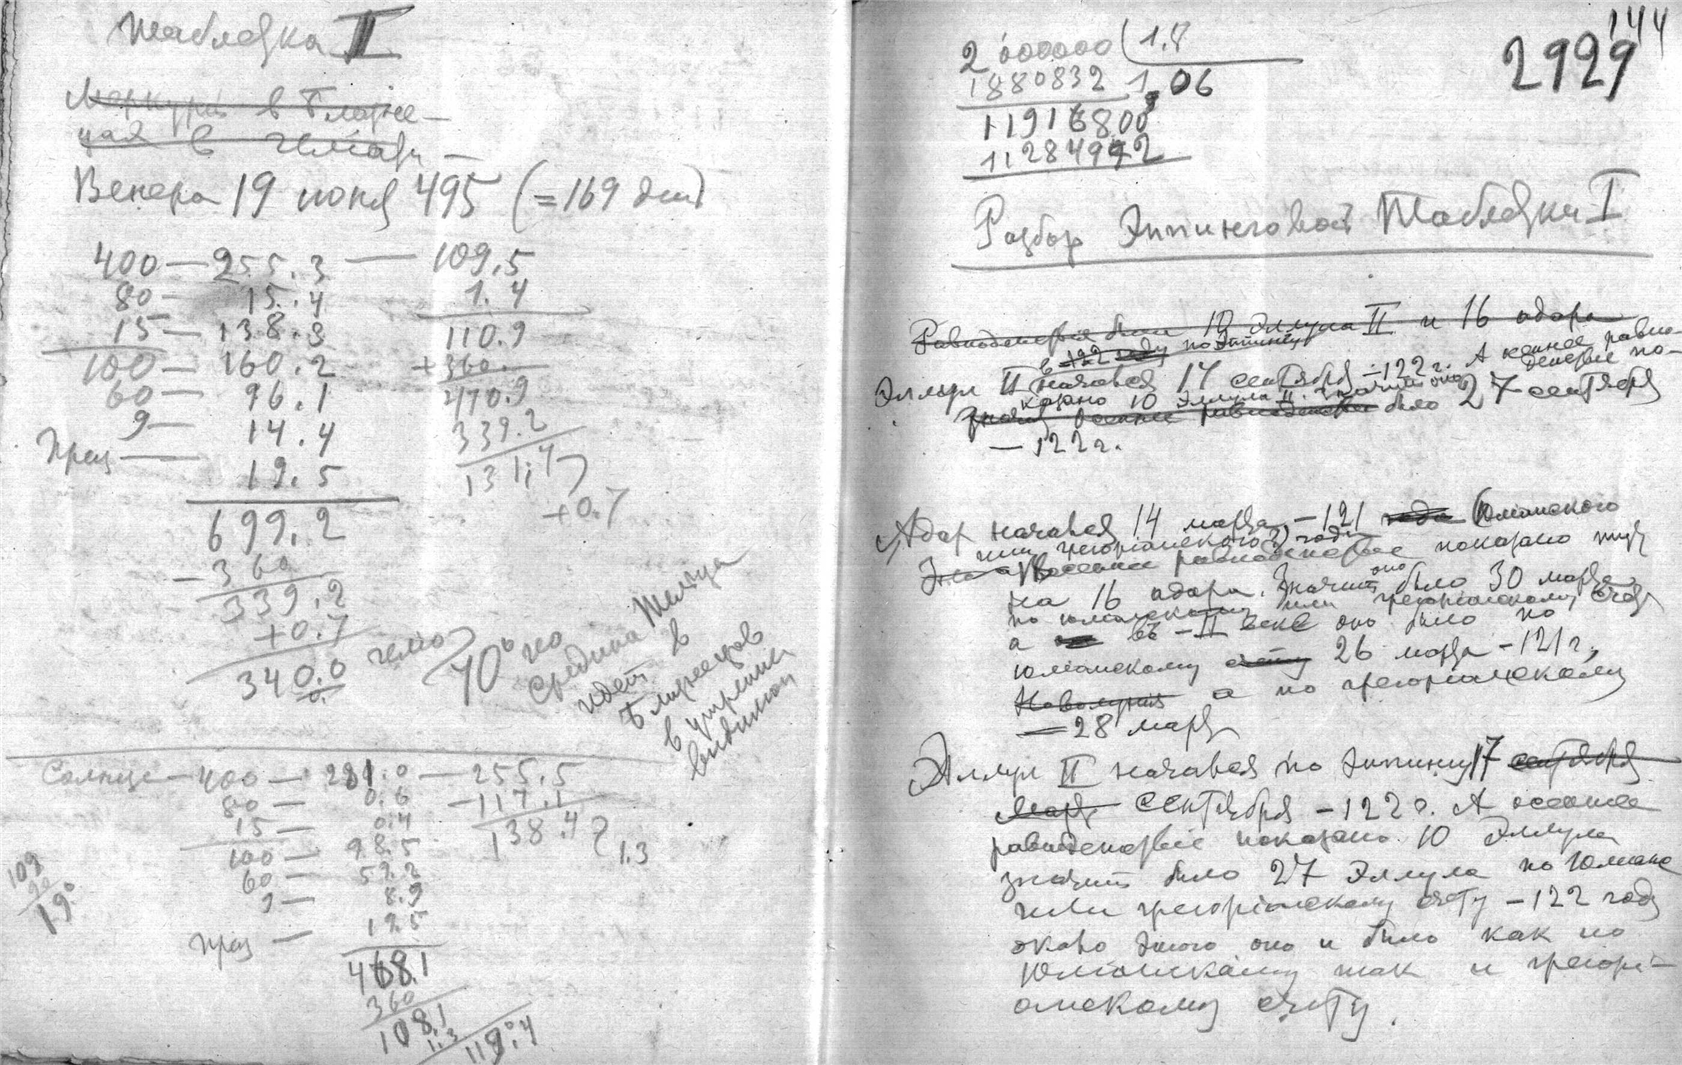 Таблезка II
Меркурий в Близне-
цах в
Венера 19 июня 495 (=169 дн)
400 — 255.3 — 109.5
80 — 15.4 1.4
15 — 138.3 110.9
100 — 160.2 +360.
60 — 96.1 470.9
9 — 14.4 339.2
Прец — 19.5 131,7
+0.7
699.2
-360
339.2
+0.7
340.0
40° но
средина Тельца
идет в
Близнецов
в утренней
видимой
Солнце — 400 — 281.0 — 255.5
80 — 0.6 -117.1
15 — 0.4 138.4
100 — 98.5 1.3
60 — 59.2
9 — 8.9
прец — 19.5
468.1
360
108.1
1.3
119°.4
109
19°
144
2929
2000000 1.8
1880832 1,06
11916800
11284992
Разбор Эппинговой Таблезки I
Равноденствия были 10 Элула II и 16 адара
в -122 году по Эппингу
Элул II начался 17 сентября -122 г. А осеннее равно-
денствие по-
казано 10 Элула II. Значит оно
было 27 сентября
— 122 г.
Адар начался 14 марта, -121 года (юлианского
или грегорианского?) года
равноденствие показано тут
на 16 адара. Значит оно было 30 марта
по юлианскому или грегорианскому счету
а в -II веке оно было по
юлианскому счету 26 марта -121 г.,
а по грегорианскому
— 28 марта
Элул II начался по Эппингу 17 сентября
Март сентября -122 г. А осеннее
равноденствие показано 10 Элула
значит было 27 Элула по Юлианс
или грегорианскому счету -122 году
около этого оно и было как по
Юлианскому так и грегори-
анскому счету.